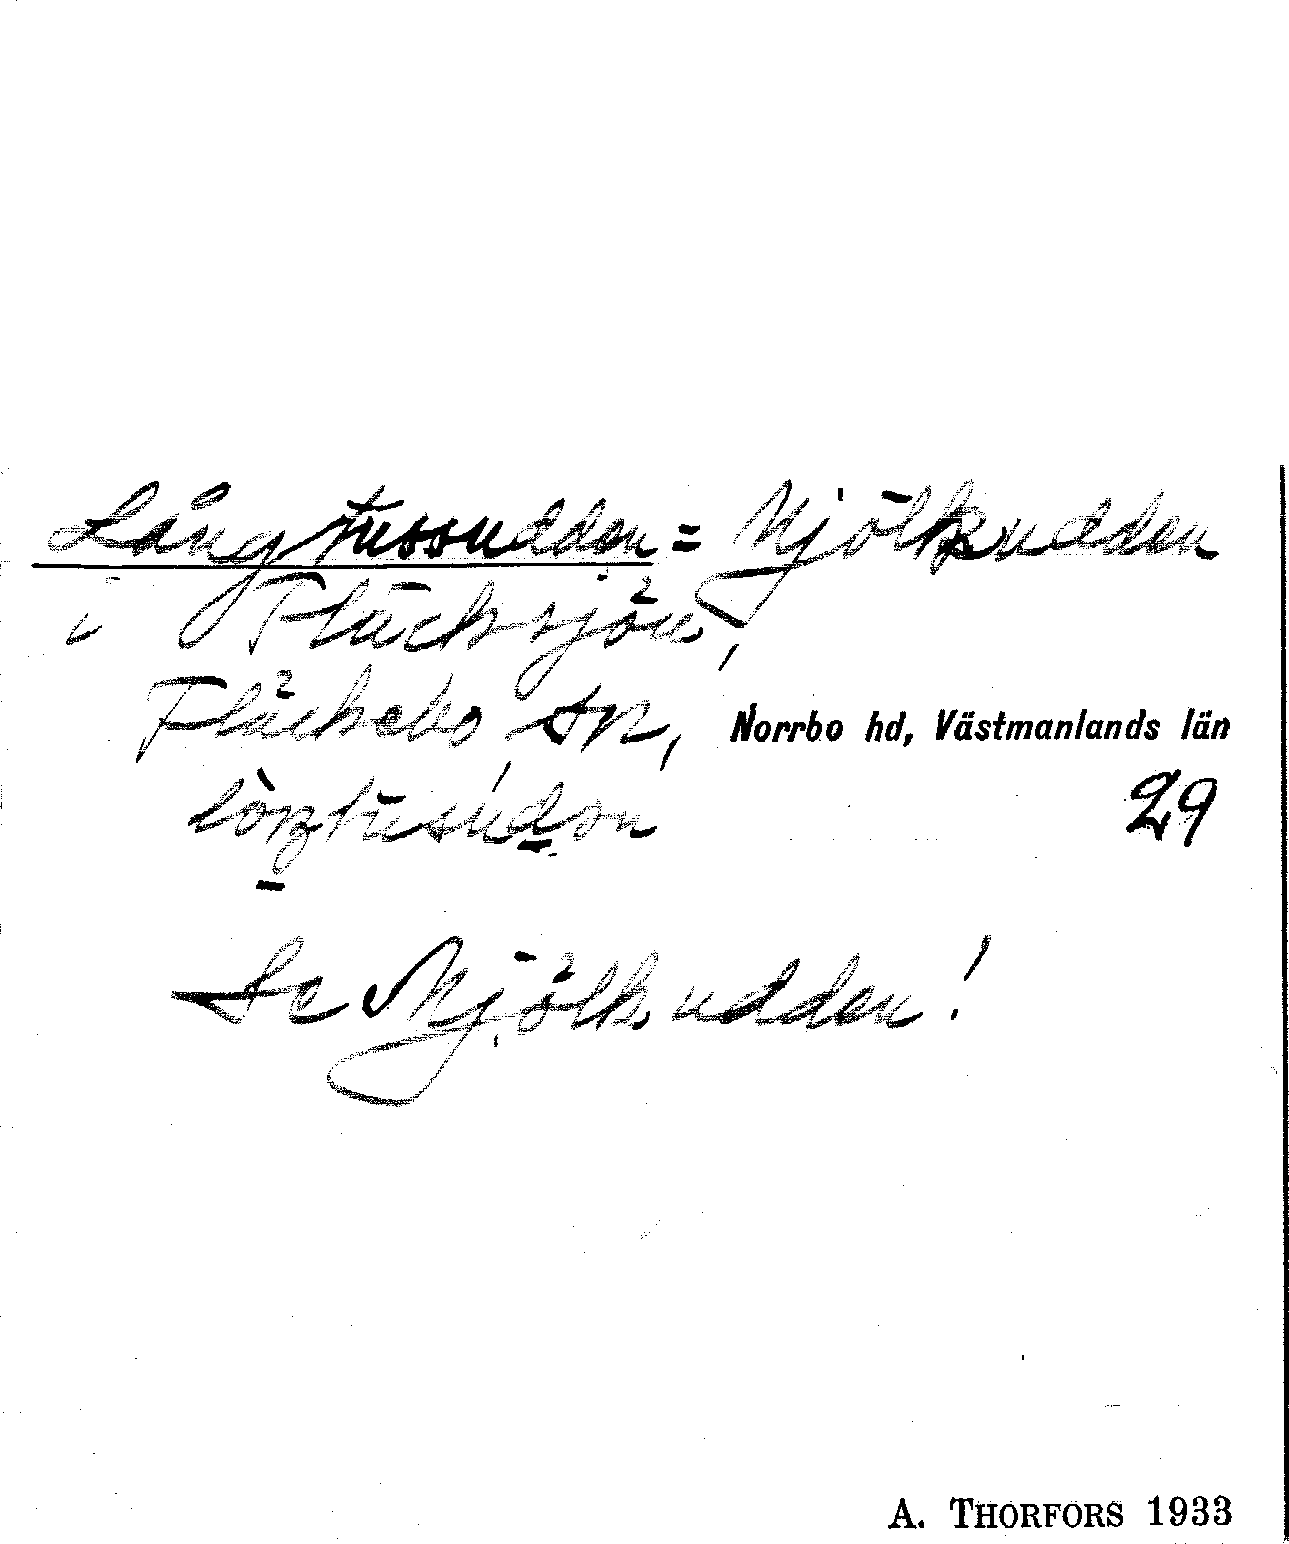 Långtussudden = Mjölkudden
i Fläcksjön,
Fläckebo sn, Norrbo hd, Västmanlands län
29
Se Mjölkudden!
A. THORFORS 1933